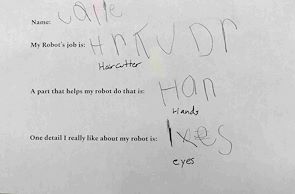 Name: Calle
My Robot's job is: HrKUDr
Haircutter
A part that helps my robot do that is: Han
Hands
One detail I really like about my robot is: Ixes
eyes